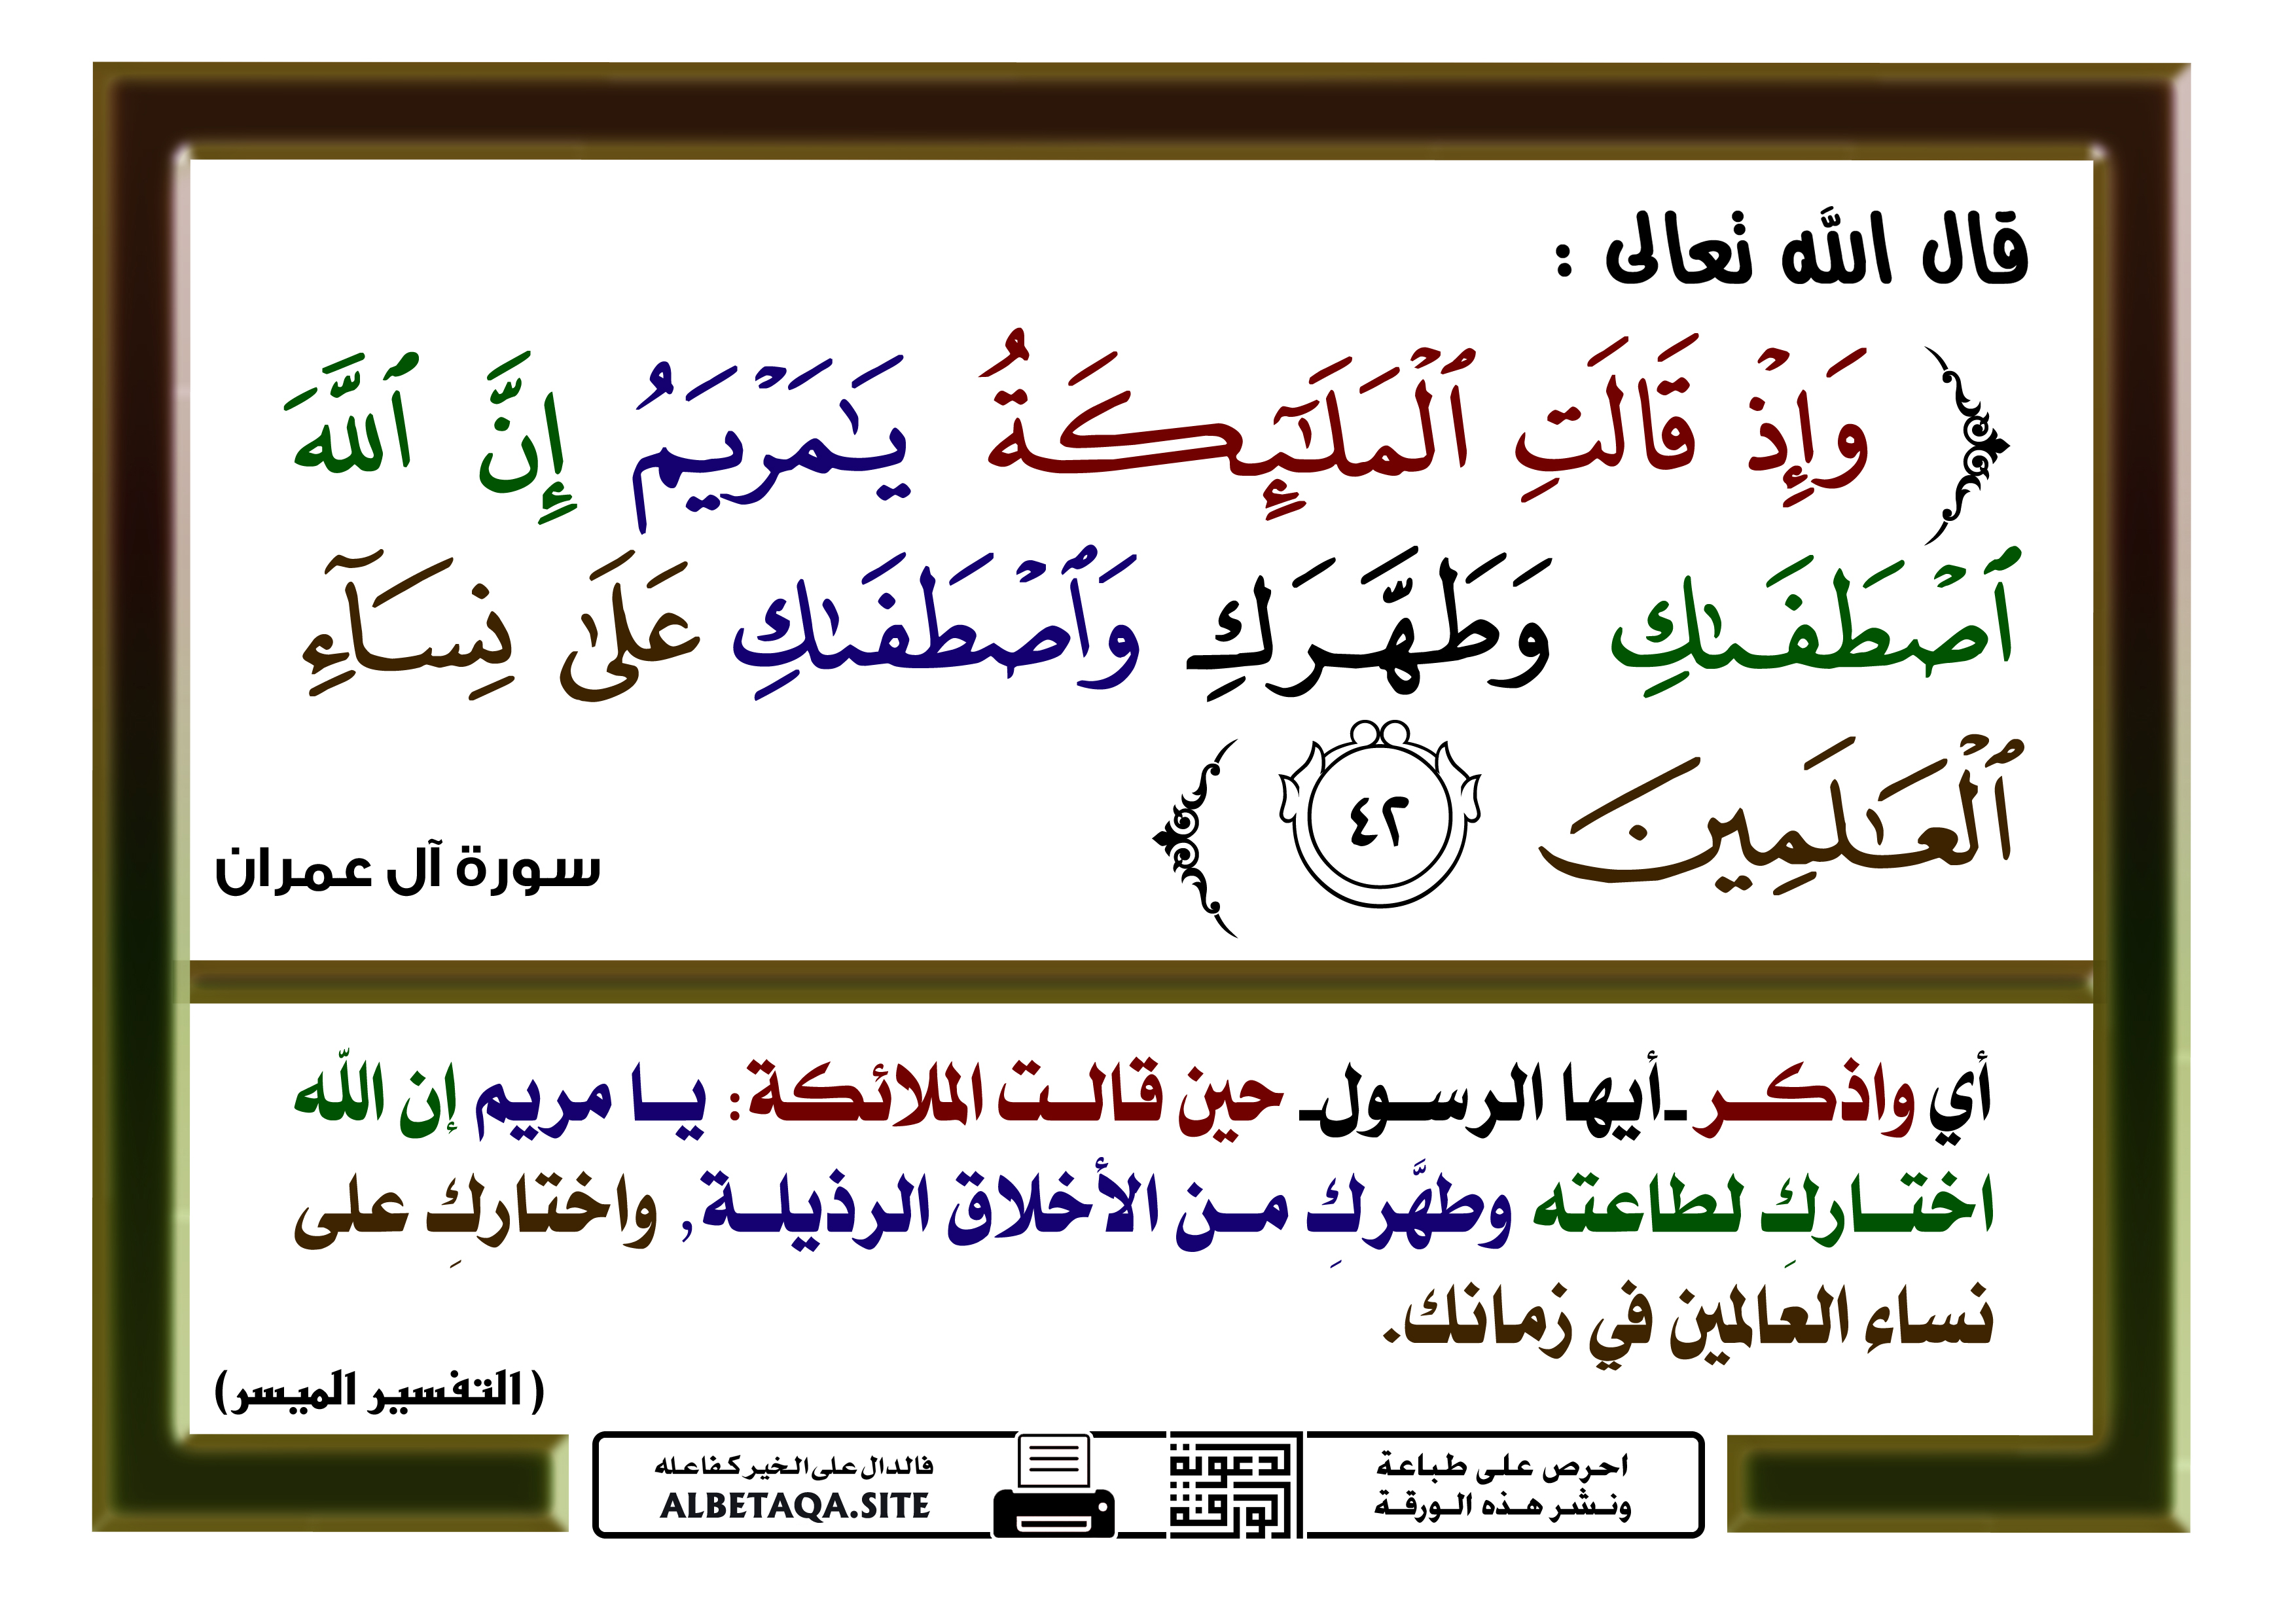 قال الله تعالى :
وَإِذْ قَالَتِ ٱلْمَلَـٰٓئِكَةُ يَـٰمَرْيَمُ إِنَّ ٱللَّهَ
ٱصْطَفَىٰكِ وَطَهَّرَكِ وَٱصْطَفَىٰكِ عَلَىٰ نِسَآءِ
ٱلْعَـٰلَمِينَ ٤٢
سورة آل عمران
أي واذكر ـأيها الرسولـ حين قالت الملائكة: يا مريم إن الله
اختاركِ لطاعته وطهَّركِ من الأخلاق الرذيلة, واختاركِ على
نساءِ العالمين في زمانك.
( التفسير الميسر)
احرص على طباعة
ونشر هذه الورقة
الورقة
الدعوية
فالدال على الخير كفاعله
ALBETAQA.SITE